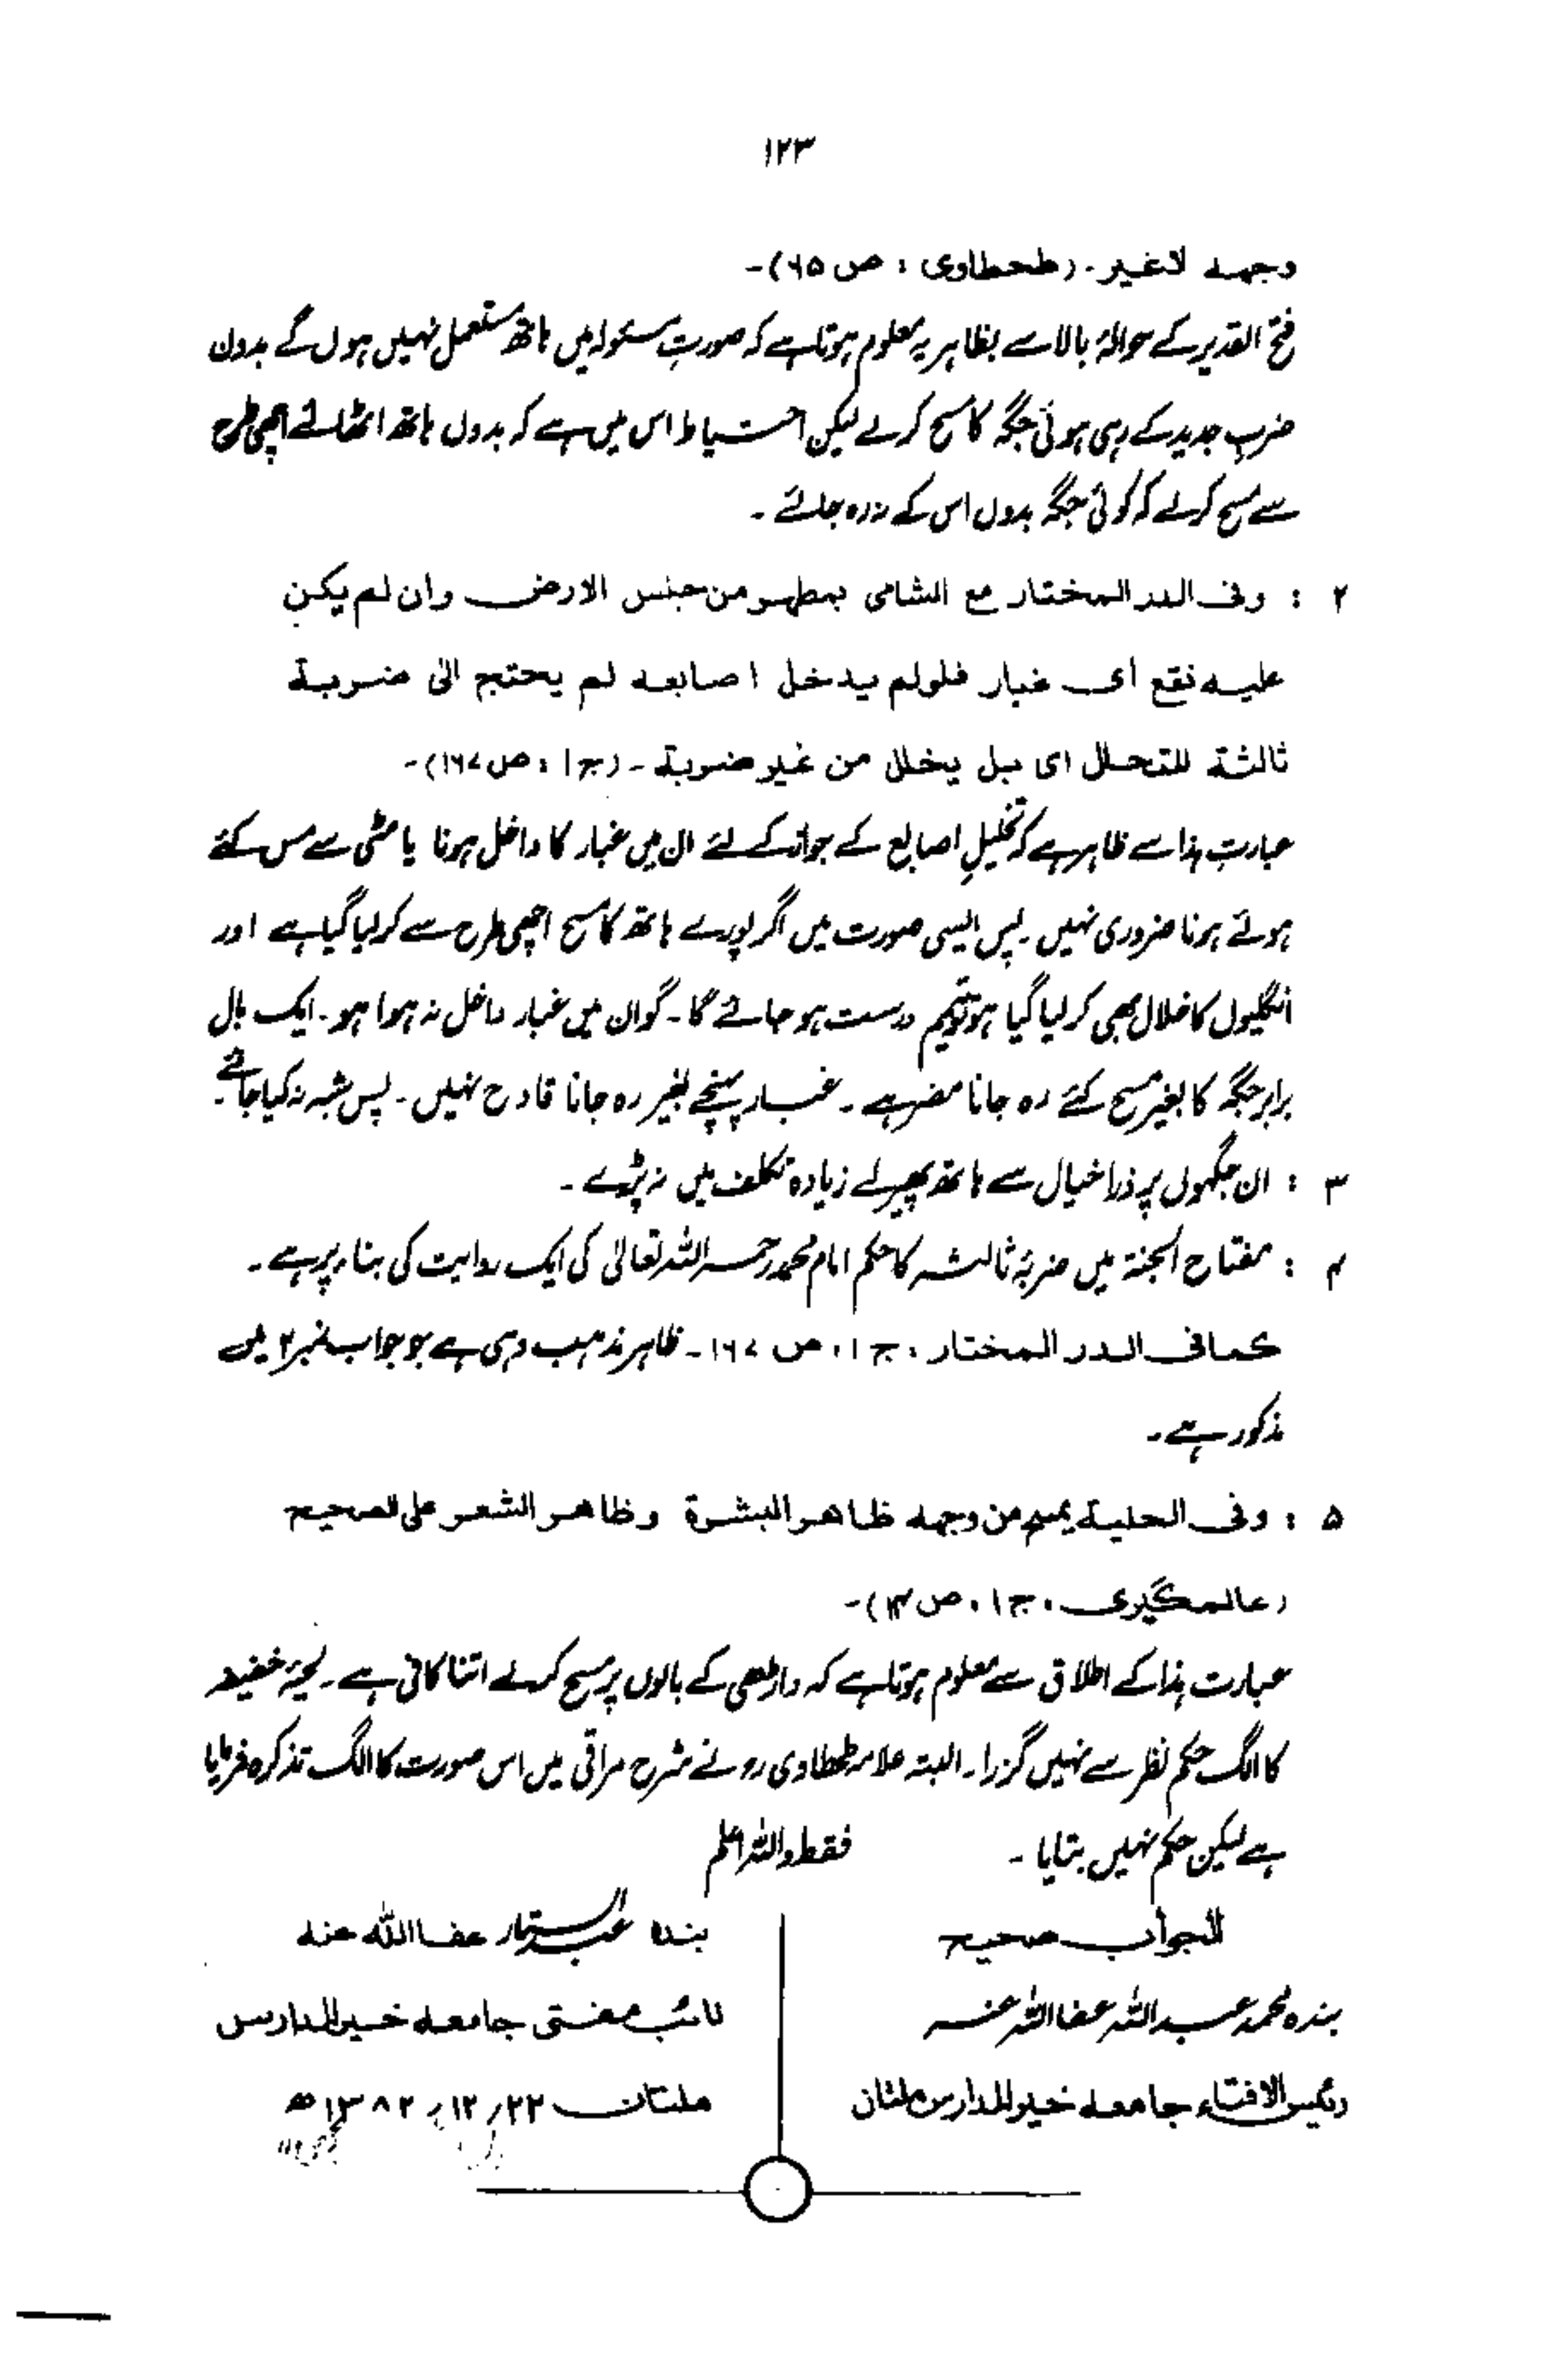 ۱۲۳
وجهه لاغير۔ (طحطاوی : ص ۶۵)۔
فتح القدیر کے حوالۂ بالا سے بظاہر یہ معلوم ہوتا ہے کہ صورتِ مسئولہ میں ہاتھ مستعمل نہیں ہوں گے بدون
ضربِ جدید کے رہی ہوئی جگہ کا مسح کر لے لیکن احتیاط اس میں ہے کہ بدوں ہاتھ اٹھائے اچھی طرح
سے مسح کر لے کہ کوئی جگہ بدوں اس کے نہ رہ جائے ۔
۲ : وفی الدر المختار مع الشامی بمطهر من جنس الارض وان لم یکن
علیه نقع ای غبار فلولم یدخل اصابعه لم یحتج الی ضربة
ثالثة للتخلل ای بل یخلل من غیر ضربة ۔ (ج ۱ ، ص ۱۶۷)۔
عبارتِ ہذا سے ظاہر ہے کہ تخلیلِ اصابع کے جواز کے لئے ان میں غبار کا داخل ہونا یا مٹی سے مس کئے
ہوئے ہونا ضروری نہیں ۔ پس ایسی صورت میں اگر پورے ہاتھ کا مسح اچھی طرح سے کر لیا گیا ہے اور
انگلیوں کا خلال بھی کر لیا گیا ہو تو تیمم درست ہو جائے گا۔ گو ان میں غبار داخل نہ ہوا ہو۔ ایک بال
برابر جگہ کا بغیر مسح کئے رہ جانا مضر ہے ۔ غبار پہنچے بغیر رہ جانا قادح نہیں ۔ پس شبہ نہ کیا جائے۔
۳ : ان جگہوں پر ذرا خیال سے ہاتھ پھیر لے زیادہ تکلف میں نہ پڑے ۔
۴ : مفتاح الجنۃ میں ضربۂ ثالثہ کا حکم امام محمد رحمہ اللہ تعالیٰ کی ایک روایت کی بناء پر ہے ۔
کمافی الدر المختار ، ج ۱ ، ص ۱۶۷ ۔ ظاہر مذہب وہی ہے جو جواب نمبر ۲ میں
مذکور ہے ۔
۵ : وفی الحلیة یمسح من وجهه ظاهر البشرة وظاهر الشعر علی الصحیح
(عالمگیری ، ج ۱ ، ص ۱۴)۔
عبارت ہذا کے اطلاق سے معلوم ہوتا ہے کہ داڑھی کے بالوں پر مسح کر لے اتنا کافی ہے ۔ لحیۂ خفیفہ
کا الگ حکم نظر سے نہیں گزرا ۔ البتہ علامہ طحطاوی رہ نے شرح مراقی میں اس صورت کا الگ تذکرہ فرمایا
ہے لیکن حکم نہیں بتایا ۔ فقط واللہ اعلم
الجواب صحیح
بندہ محمد عبداللہ عفا اللہ عنہ
رئیس الافتاء جامعہ خیر المدارس ملتان
بندہ عبدالستار عفا اللہ عنہ
نائب مفتی جامعہ خیر المدارس
ملتان ۲۲؍۱۲؍۱۳۸۲ھ